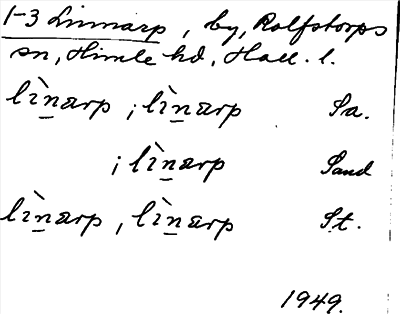 1-3 Linnarp, by, Rolfstorps
sn, Himle hd, Hall. l.
lìn̲arp ; lìn̲ arp Sa.
; lìn̲arp Sand
lìn̲arp , lìn̲arp St.
1949.